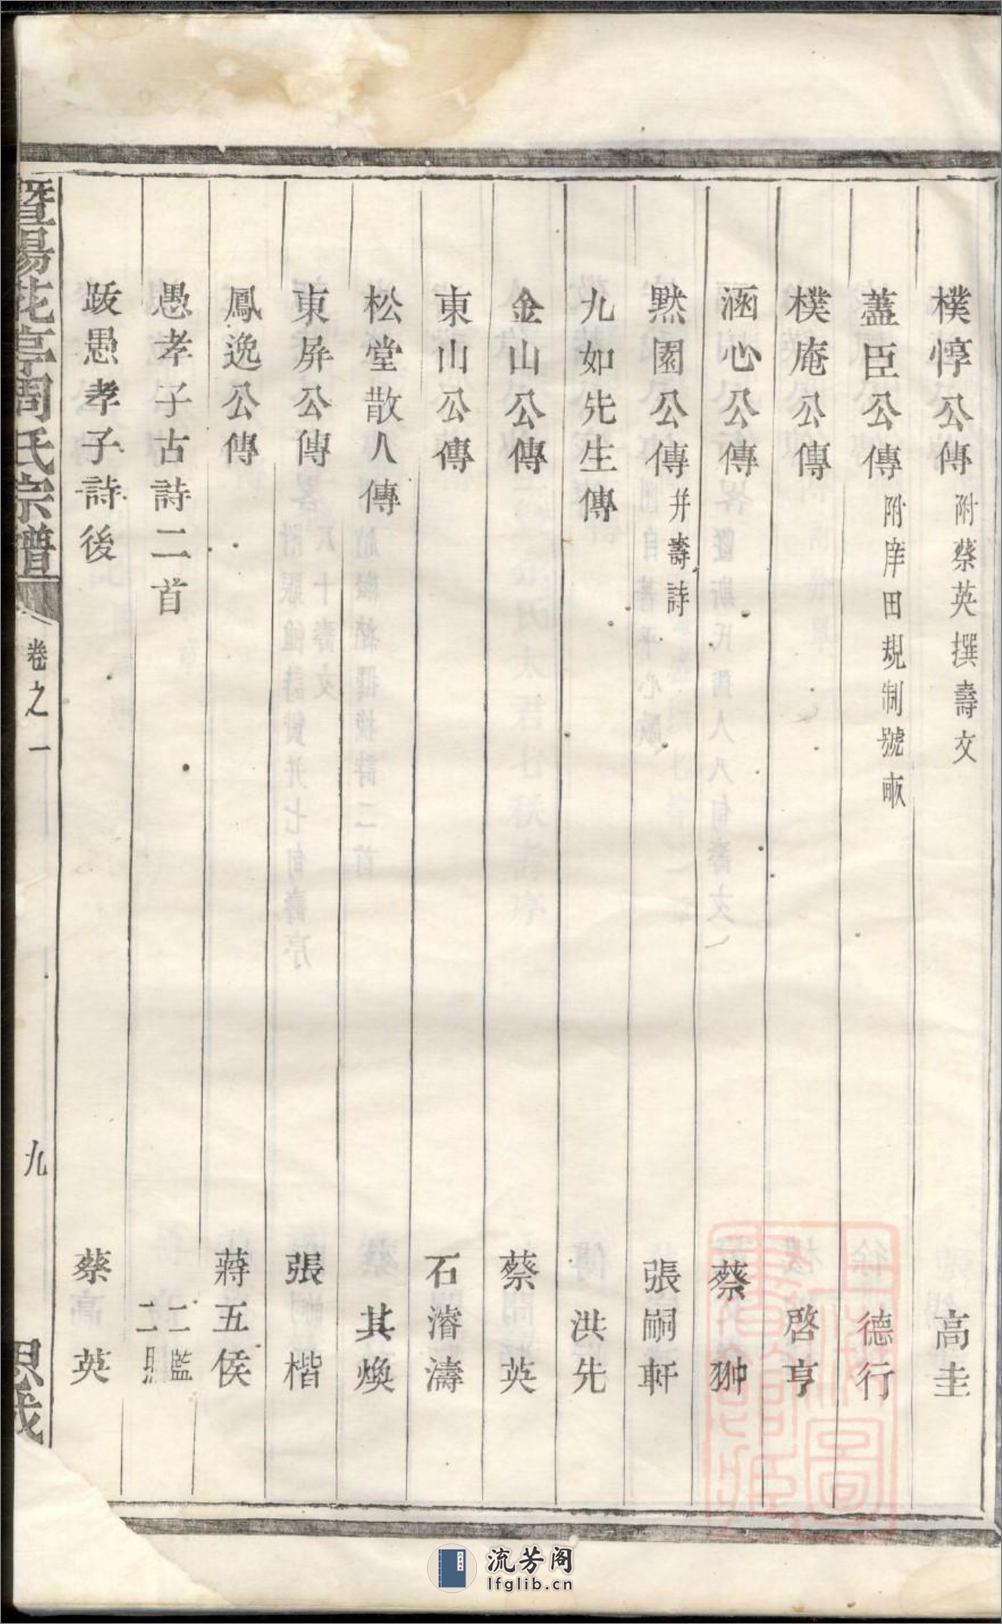 樸惇公傳 附蔡英撰壽文 高圭
藎臣公傳 附庠田規制號畝 德行
樸庵公傳 啓亨
涵心公傳 蔡翀
默園公傳 并壽詩 張嗣軒
九如先生傳 洪先
金山公傳 蔡英
東山公傳 石濬濤
松堂散人傳 其煥
東屏公傳 張楷
鳳逸公傳 蔣五侯
愚孝子古詩二首 二監 二
跋愚孝子詩後 蔡英
暨陽花亭周氏宗譜 卷之一 九 思成
流芳阁
lfglib.cn